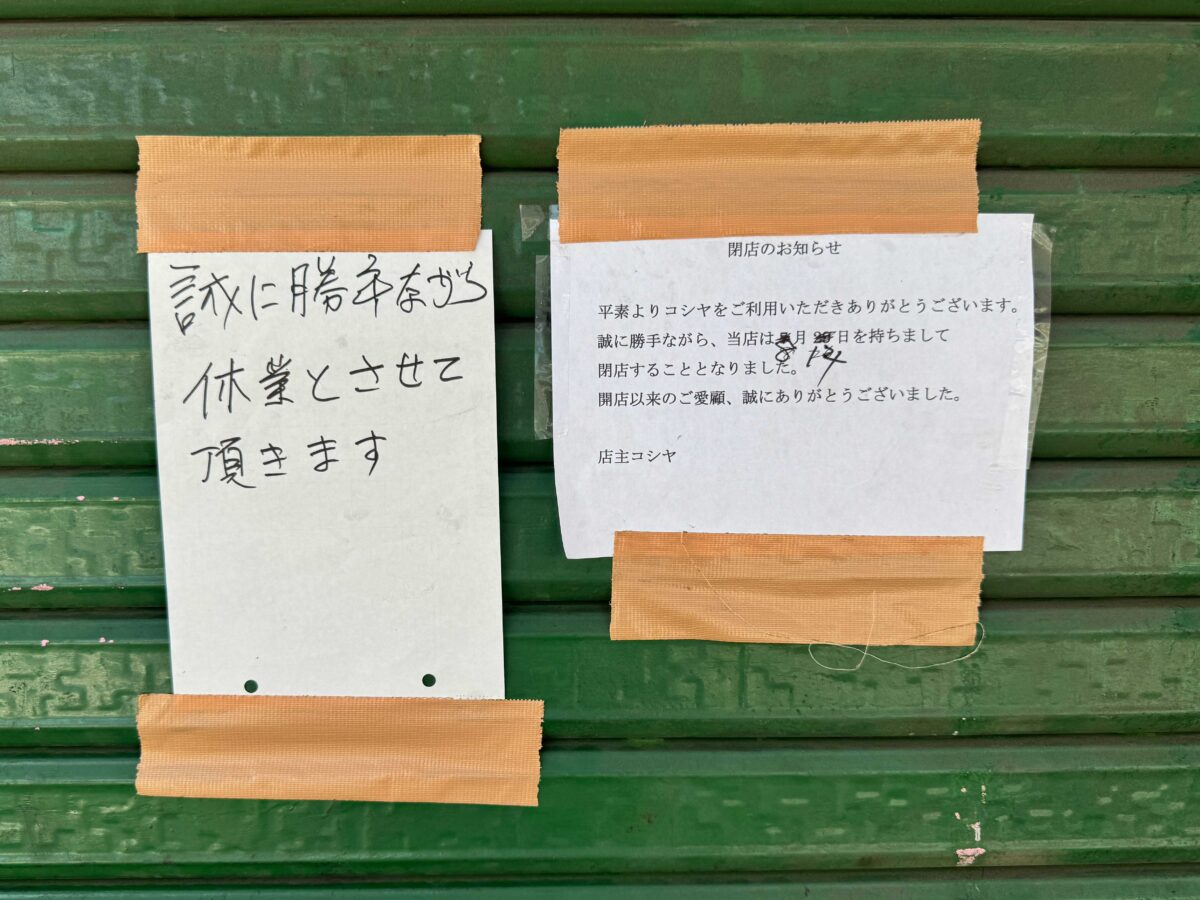 誠に勝手ながら
休業とさせて
頂きます
閉店のお知らせ
平素よりコシヤをご利用いただきありがとうございます。
誠に勝手ながら、当店は月日を持ちまして
閉店することとなりました。
開店以来のご愛顧、誠にありがとうございました。
店主コシヤ